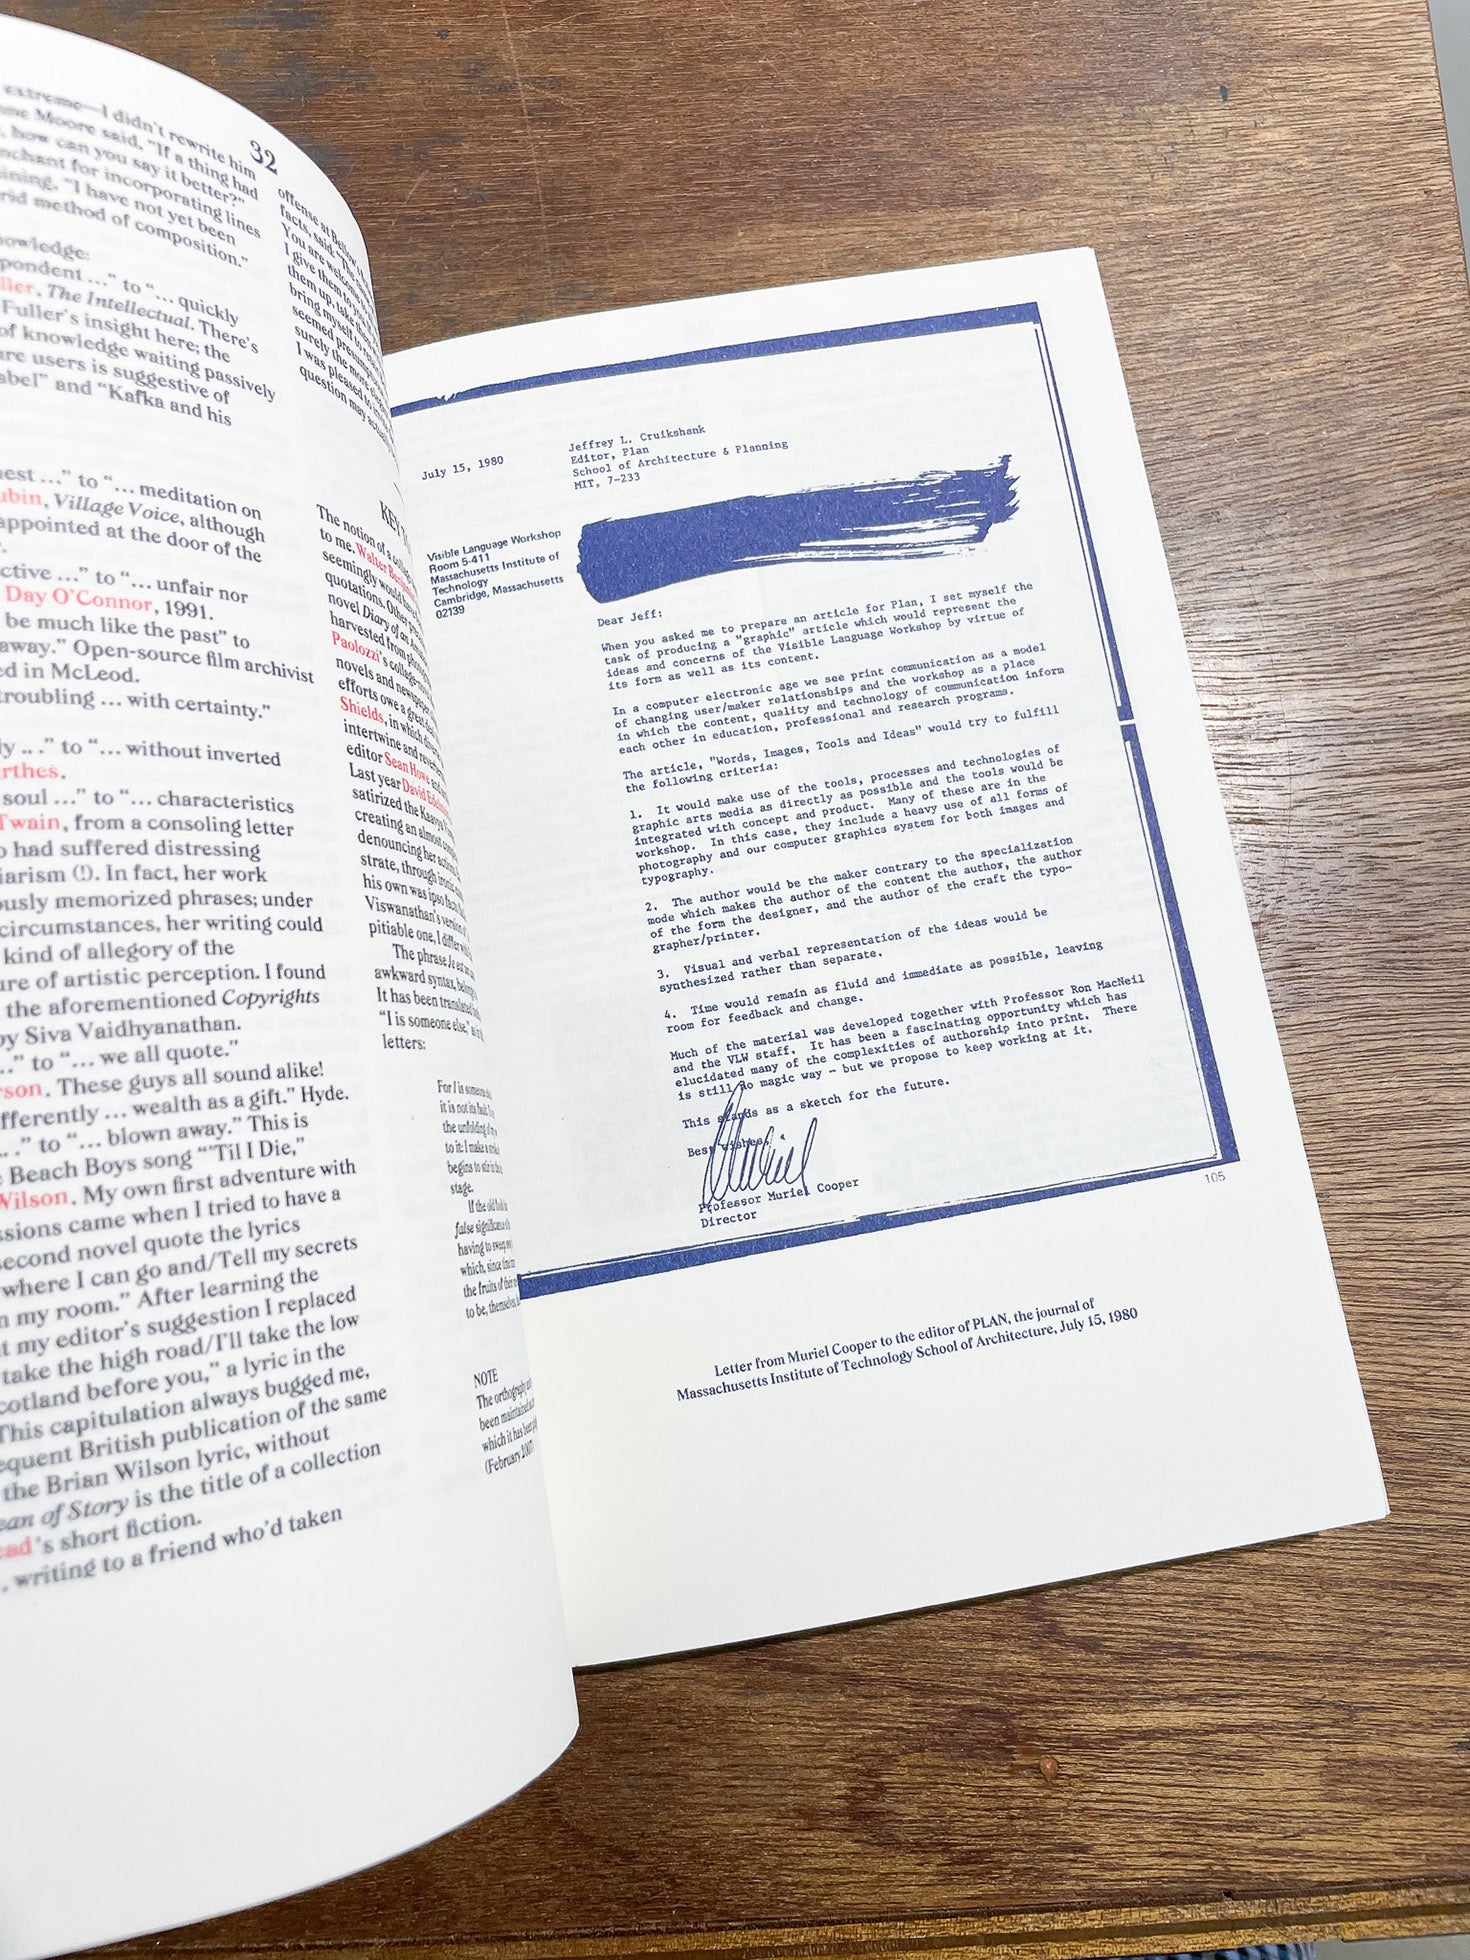 extreme—I didn't rewrite him
Moore said, "If a thing had
how can you say it better?"
for incorporating lines
"I have not yet been
method of composition."
" to "… quickly
The Intellectual. There's
Fuller's insight here; the
of knowledge waiting passively
users is suggestive of
and "Kafka and his
…" to "… meditation on
Village Voice, although
appointed at the door of the
…" to "… unfair nor
Day O'Connor, 1991.
be much like the past" to
away." Open-source film archivist
in McLeod.
troubling … with certainty."
" to "… without inverted
soul …" to "… characteristics
Twain, from a consoling letter
had suffered distressing
(!). In fact, her work
memorized phrases; under
circumstances, her writing could
kind of allegory of the
of artistic perception. I found
the aforementioned Copyrights
by Siva Vaidhyanathan.
" to "… we all quote."
These guys all sound alike!
… wealth as a gift." Hyde.
" to "… blown away." This is
Beach Boys song "'Til I Die,"
Wilson. My own first adventure with
came when I tried to have a
second novel quote the lyrics
where I can go and/Tell my secrets
my room." After learning the
my editor's suggestion I replaced
take the high road/I'll take the low
before you," a lyric in the
This capitulation always bugged me,
British publication of the same
the Brian Wilson lyric, without
of Story is the title of a collection
's short fiction.
writing to a friend who'd taken
32
offense at Bellow's
facts, said: "The
You are welcome to
I give them to you
them up, take them
bring myself to
seemed
surely the more
I was pleased to
question may
KEY
The notion of a
to me. Walter
seemingly would have
quotations. Other
novel Diary of an
harvested from
Paolozzi's
novels and newspaper
efforts owe a great
Shields, in which
intertwine and
editor Sean Howe
Last year David
satirized the Kaavya
creating an almost
denouncing her
strate, through
his own was ipso facto
Viswanathan's version
pitiable one, I differ
The phrase Je est
awkward syntax,
It has been translated
"I is someone else," as
letters:
For I is someone
it is not its fault.
the unfolding of my
to it: I make a
begins to stir in the
stage.
If the old
false significance
having to sweep
which, since time
the fruits of their
to be, themselves,
NOTE
The orthography
been maintained
which it has been
(February 2007)
July 15, 1980
Jeffrey L. Cruikshank
Editor, Plan
School of Architecture & Planning
MIT, 7-233
Visible Language Workshop
Room 5-411
Massachusetts Institute of
Technology
Cambridge, Massachusetts
02139
Dear Jeff:
When you asked me to prepare an article for Plan, I set myself the
task of producing a "graphic" article which would represent the
ideas and concerns of the Visible Language Workshop by virtue of
its form as well as its content.
In a computer electronic age we see print communication as a model
of changing user/maker relationships and the workshop as a place
in which the content, quality and technology of communication inform
each other in education, professional and research programs.
The article, "Words, Images, Tools and Ideas" would try to fulfill
the following criteria:
1. It would make use of the tools, processes and technologies of
graphic arts media as directly as possible and the tools would be
integrated with concept and product. Many of these are in the
workshop. In this case, they include a heavy use of all forms of
photography and our computer graphics system for both images and
typography.
2. The author would be the maker contrary to the specialization
mode which makes the author of the content the author, the author
of the form the designer, and the author of the craft the typo-
grapher/printer.
3. Visual and verbal representation of the ideas would be
synthesized rather than separate.
4. Time would remain as fluid and immediate as possible, leaving
room for feedback and change.
Much of the material was developed together with Professor Ron MacNeil
and the VLW staff. It has been a fascinating opportunity which has
elucidated many of the complexities of authorship into print. There
is still no magic way - but we propose to keep working at it.
This stands as a sketch for the future.
Best wishes,
Muriel
Professor Muriel Cooper
Director
105
Letter from Muriel Cooper to the editor of PLAN, the journal of
Massachusetts Institute of Technology School of Architecture, July 15, 1980